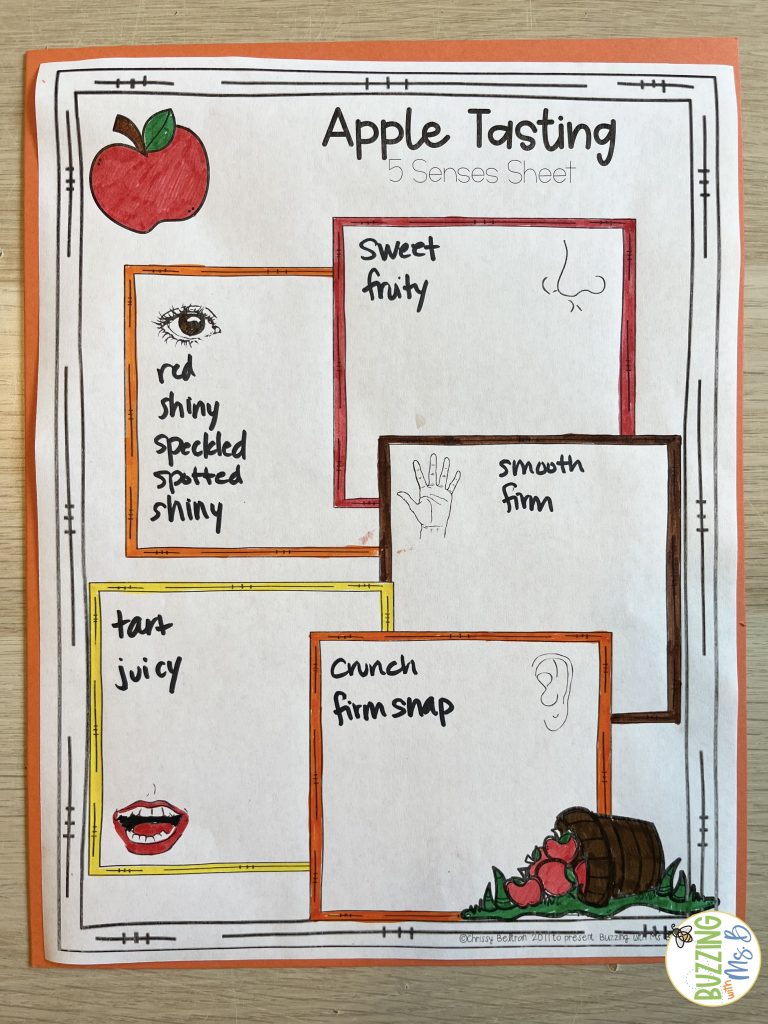 Apple Tasting
5 Senses Sheet
sweet
fruity
red
shiny
speckled
spotted
shiny
smooth
firm
tart
juicy
crunch
firm snap
©Chrissy Beltran 2011 to present Buzzing with Ms B
BUZZING
with Ms. B